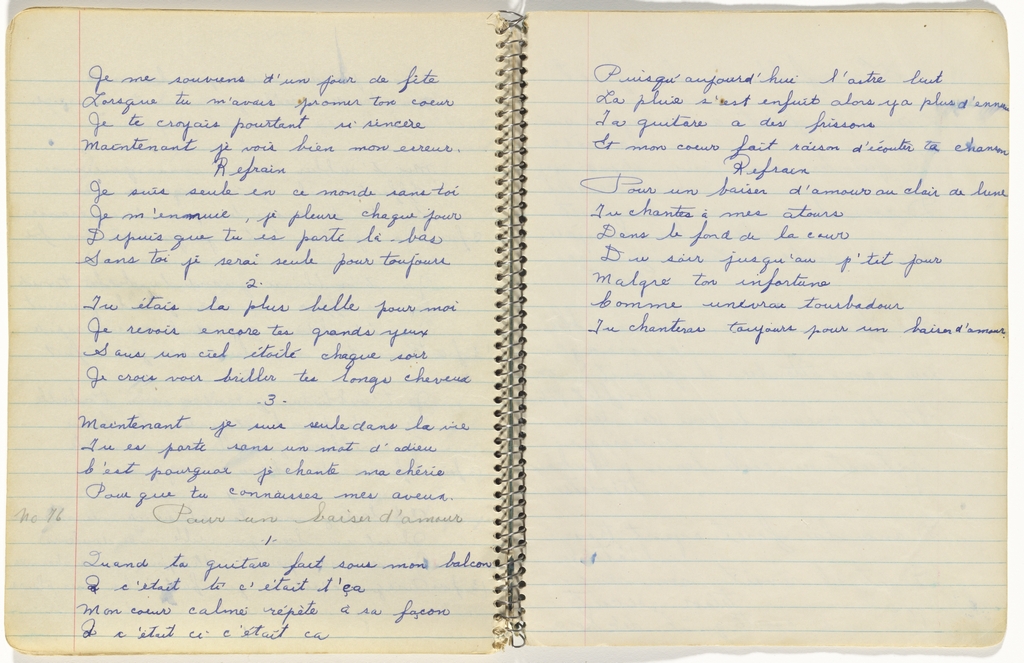 Je me souviens d'un jour de fête
Lorsque tu m'avais promis ton coeur
Je te croyais pourtant si sincère
Maintenant je vois bien mon erreur.
Refrain
Je suis seule en ce monde sans toi
Je m'ennuie, je pleure chaque jour
Depuis que tu es partie là-bas
Sans toi je serai seule pour toujours
2.
Tu étais la plus belle pour moi
Je revois encore tes grands yeux
Sous un ciel étoilé chaque soir
Je crois voir briller tes longs cheveux
-3-
Maintenant je suis seule dans la vie
Tu es partie sans un mot d'adieu
C'est pourquoi je chante ma chérie
Pour que tu connaisses mes aveux.
No 76 Pour un baiser d'amour
-1-
Quand ta guitare fait sous mon balcon
I c'était ti c'était t'ça
Mon coeur calmé répète à sa façon
I c'était ci c'était ca
Puisqu'aujourd'hui l'astre luit
La pluie s'est enfuit alors ya plus d'ennui
Ta guitare a des frissons
Et mon coeur fait raison d'écouter ta chanson
Refrain
Pour un baiser d'amour au clair de lune
Tu chantes à mes atours
Dans le fond de la cour
Du soir jusqu'au p'tit jour
Malgré ton infortune
Comme une vrai tourbadour
Tu chanteras toujours pour un baiser d'amour